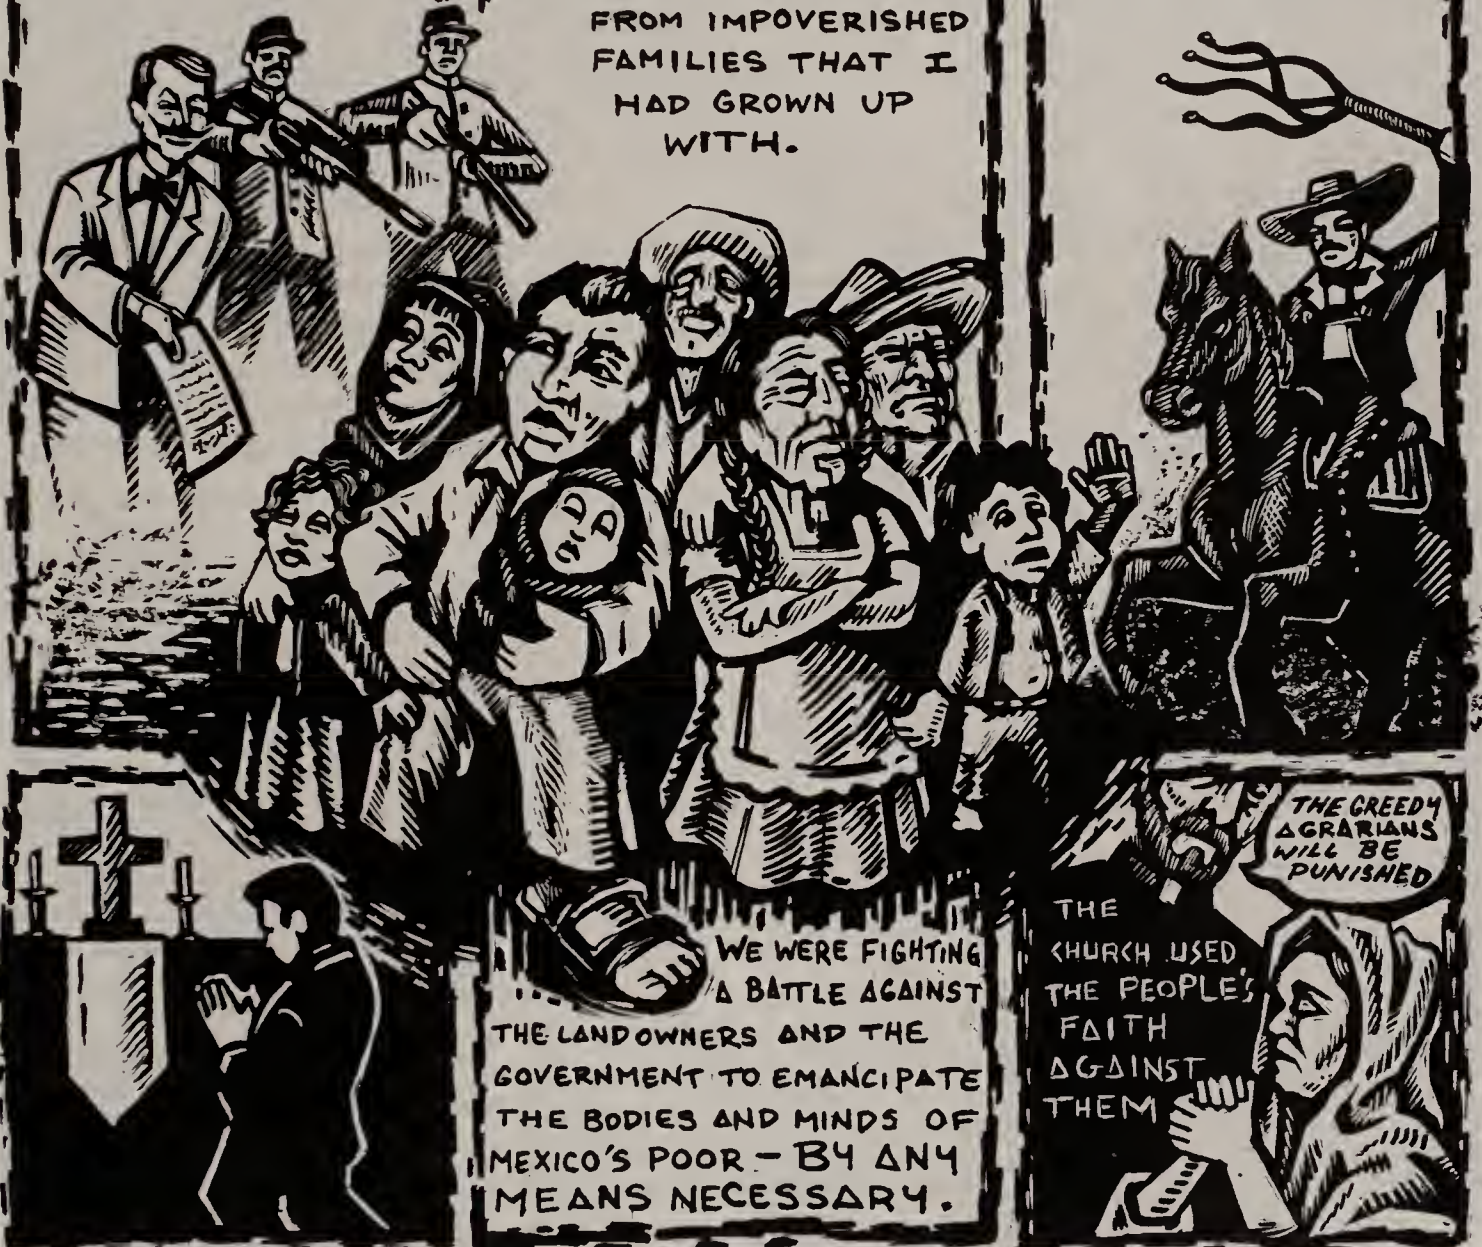 FROM IMPOVERISHED
FAMILIES THAT I
HAD GROWN UP
WITH.
WE WERE FIGHTING
A BATTLE AGAINST
THE LANDOWNERS AND THE
GOVERNMENT TO EMANCIPATE
THE BODIES AND MINDS OF
MEXICO'S POOR – BY ANY
MEANS NECESSARY.
THE GREEDY
AGRARIANS
WILL BE
PUNISHED
THE
CHURCH USED
THE PEOPLE'S
FAITH
AGAINST
THEM